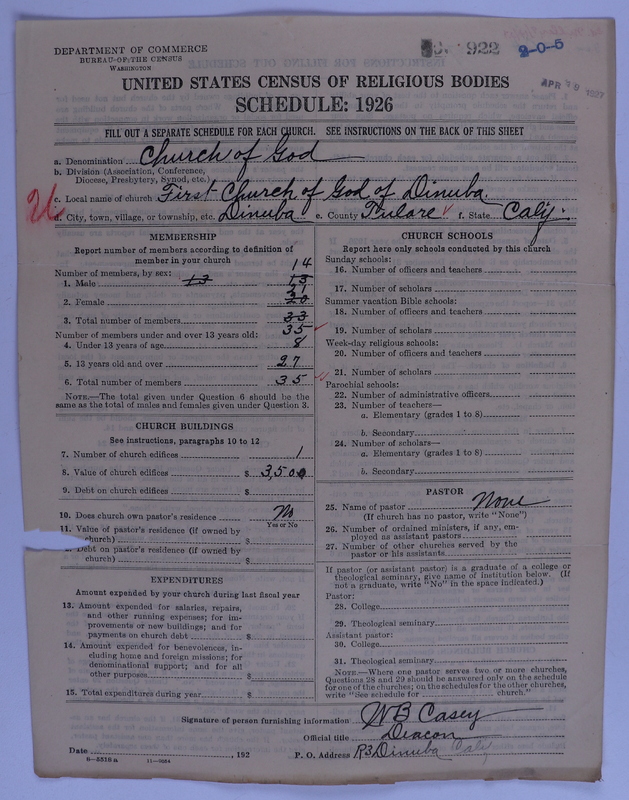 DEPARTMENT OF COMMERCE
BUREAU OF THE CENSUS
WASHINGTON
1922
2-0-5
APR 19 1927
UNITED STATES CENSUS OF RELIGIOUS BODIES
SCHEDULE: 1926
FILL OUT A SEPARATE SCHEDULE FOR EACH CHURCH. SEE INSTRUCTIONS ON THE BACK OF THIS SHEET
a. Denomination Church of God
b. Division (Association, Conference,
Diocese, Presbytery, Synod, etc.)
c. Local name of church First Church of God of Dinuba
City, town, village, or township, etc. Dinuba e. County Tulare f. State Calif.
MEMBERSHIP
Report number of members according to definition of
member in your church
Number of members, by sex: 14
1. Male 13 13
21
2. Female 20
3. Total number of members 33
35
Number of members under and over 13 years old:
4. Under 13 years of age 8
5. 13 years old and over 27
6. Total number of members 35
NOTE.—The total given under Question 6 should be
same as the total of males and females given under Question 3.
CHURCH BUILDINGS
See instructions, paragraphs 10 to 12
7. Number of church edifices 1
8. Value of church edifices $ 3,500
9. Debt on church edifices $
10. Does church own pastor's residence No
Yes or No
11. Value of pastor's residence (if owned by
church) $
Debt on pastor's residence (if owned by
church) $
EXPENDITURES
Amount expended by your church during last fiscal year
13. Amount expended for salaries, repairs,
and other running expenses; for im-
provements or new buildings; and for
payments on church debt $
14. Amount expended for benevolences, in-
cluding home and foreign missions; for
denominational support; and for all
other purposes $
15. Total expenditures during year $
CHURCH SCHOOLS
Report here only schools conducted by this church
Sunday schools:
16. Number of officers and teachers
17. Number of scholars
Summer vacation Bible schools:
18. Number of officers and teachers
19. Number of scholars
Week-day religious schools:
20. Number of officers and teachers
21. Number of scholars
Parochial schools:
22. Number of administrative officers
23. Number of teachers—
a. Elementary (grades 1 to 8)
b. Secondary
24. Number of scholars—
a. Elementary (grades 1 to 8)
b. Secondary
PASTOR
25. Name of pastor None
(If church has no pastor, write "None")
26. Number of ordained ministers, if any, em-
ployed as assistant pastors
27. Number of other churches served by the
pastor or his assistants
If pastor (or assistant pastor) is a graduate of a college or
theological seminary, give name of institution below. (If
not a graduate, write "No" in the space indicated.)
Pastor:
28. College
29. Theological seminary
Assistant pastor:
30. College
31. Theological seminary
NOTE.—Where one pastor serves two or more churches,
Questions 28 and 29 should be answered only on the schedule
for one of the churches; on the schedules for the other churches,
write "See schedule for church."
Signature of person furnishing information W B Casey
Official title Deacon
Date , 192 P. O. Address R3 Dinuba Calif
8-5318 a 11-9264